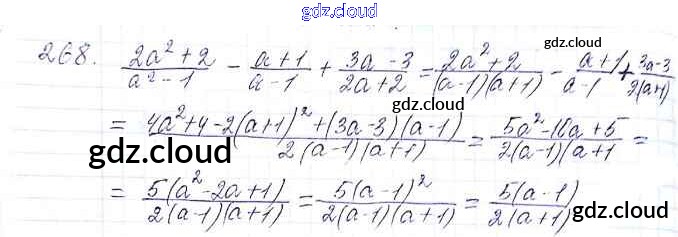 gdz.cloud
268. (2a² + 2)/(a² - 1) - (a + 1)/(a - 1) + (3a - 3)/(2a + 2) = (2a² + 2)/((a - 1)(a + 1)) - (a + 1)/(a - 1) + (3a - 3)/(2(a + 1))
gdz.cloud
gdz.cloud
= (4a² + 4 - 2(a + 1)² + (3a - 3)(a - 1))/(2(a - 1)(a + 1)) = (5a² - 10a + 5)/(2(a - 1)(a + 1) =
gdz.cloud
gdz.cloud
= (5(a² - 2a + 1))/(2(a - 1)(a + 1)) = (5(a - 1)²)/(2(a - 1)(a + 1)) = (5(a - 1))/(2(a + 1))
gdz.cloud